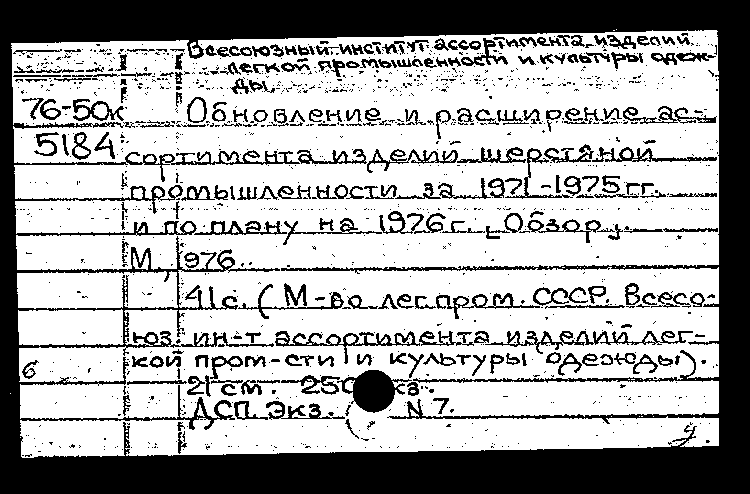 Всесоюзный институт ассортимента изделий
легкой промышленности и культуры одеж-
ды.
76-50к Обновление и расширение ас-
5184 сортимента изделий шерстяной
промышленности за 1971-1975 гг.
и по плану на 1976 г. [Обзор].
М., 1976.
41 с. (М-во лег. пром. СССР. Всесо-
юз. ин-т ассортимента изделий лег-
кой пром-сти и культуры одежды).
б
21 см. 250
ДСП. Экз. N 7.